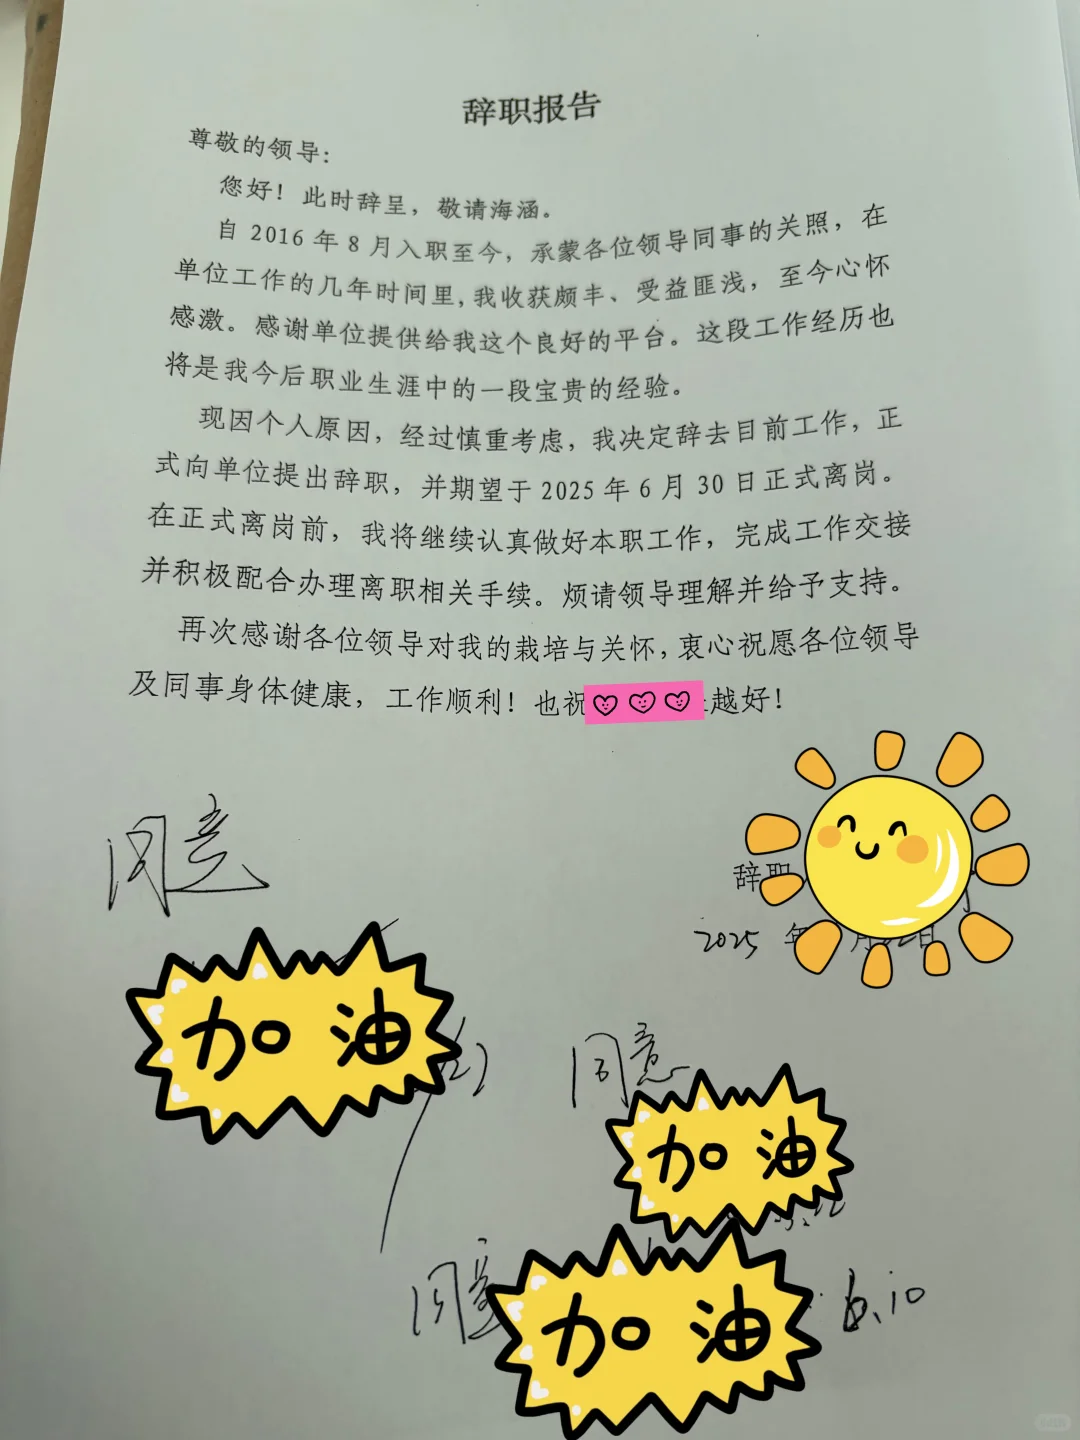 辞职报告
尊敬的领导：
您好！此时辞呈，敬请海涵。
自 2016 年 8 月入职至今，承蒙各位领导同事的关照，在
单位工作的几年时间里，我收获颇丰、受益匪浅，至今心怀
感激。感谢单位提供给我这个良好的平台。这段工作经历也
将是我今后职业生涯中的一段宝贵的经验。
现因个人原因，经过慎重考虑，我决定辞去目前工作，正
式向单位提出辞职，并期望于 2025 年 6 月 30 日正式离岗。
在正式离岗前，我将继续认真做好本职工作，完成工作交接
并积极配合办理离职相关手续。烦请领导理解并给予支持。
再次感谢各位领导对我的栽培与关怀，衷心祝愿各位领导
及同事身体健康，工作顺利！也祝 越好！
同意
辞职
2025 年 月 日
加油
同意
加油
同意
加油
6.10